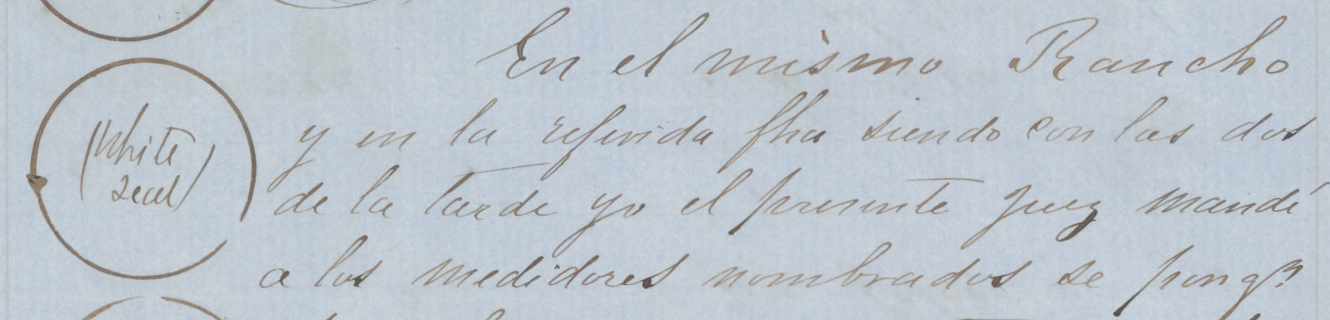 En el mismo Rancho
(White
Seal)
y en la referida fha siendo con las dos
de la tarde yo el presente Juez mandé
a los medidores nombrados se pongn